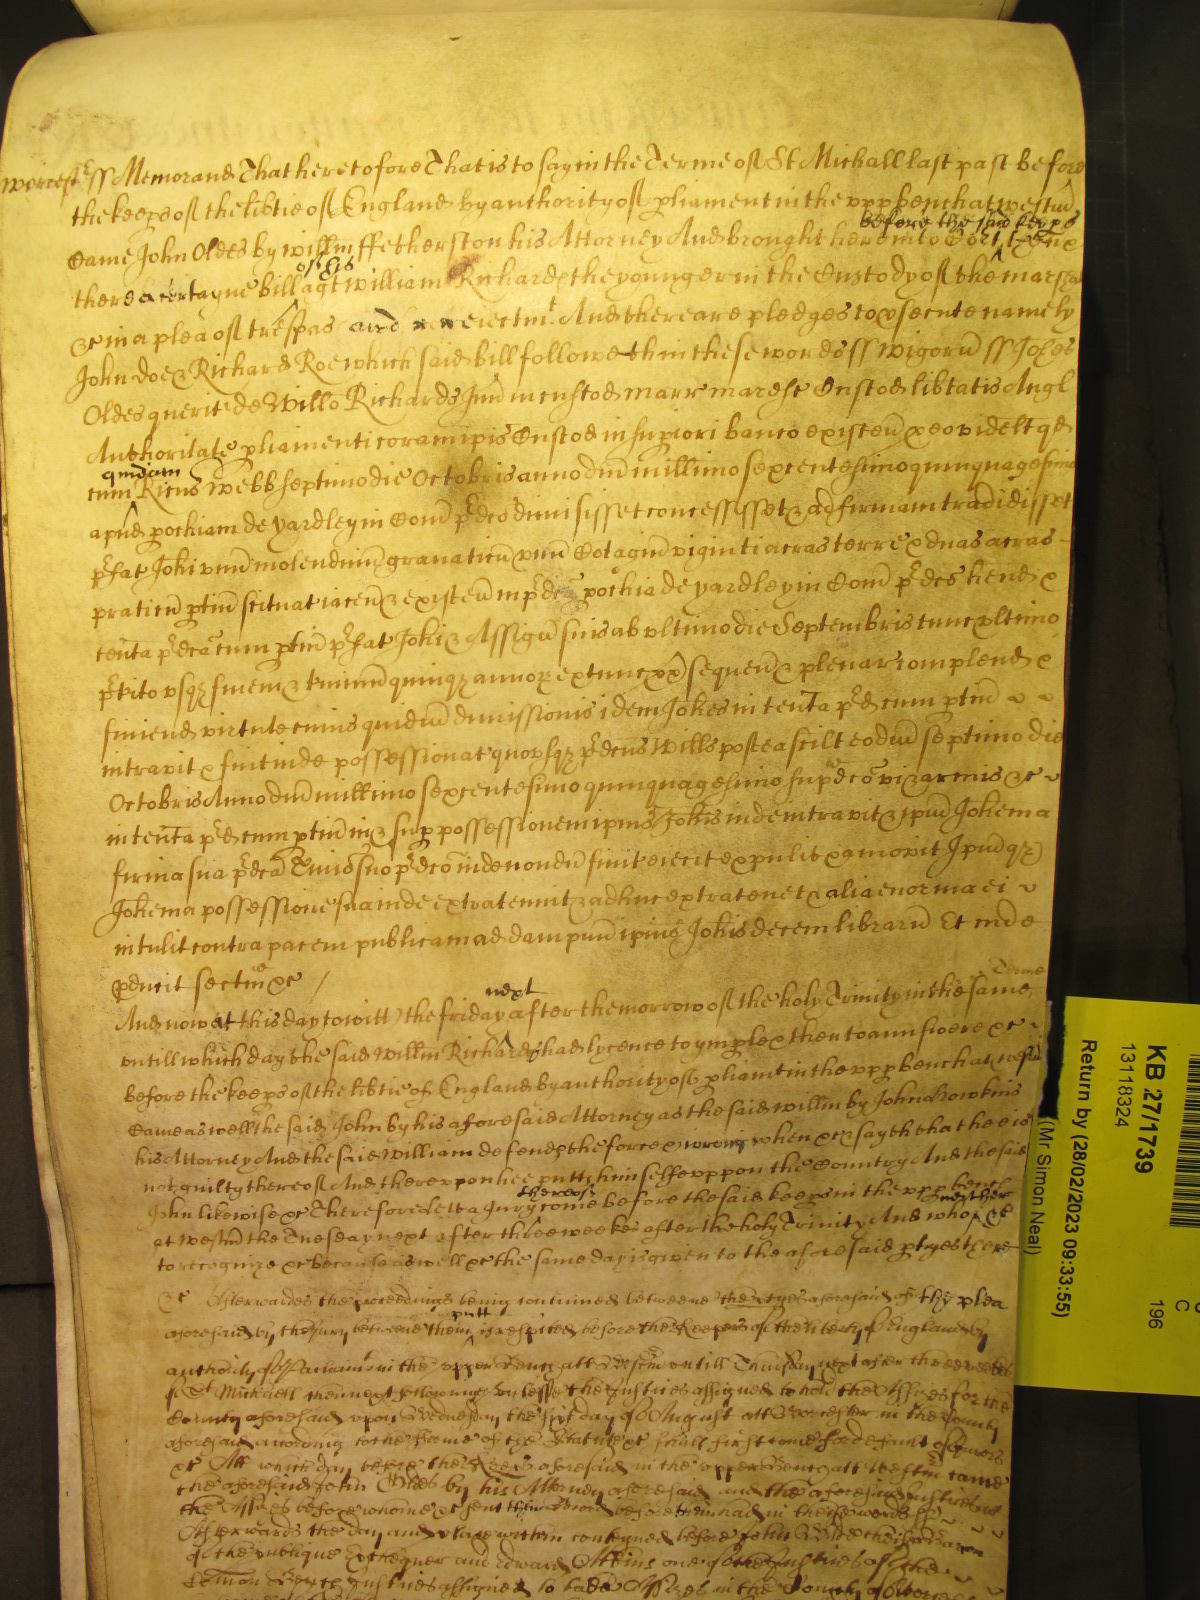 worcestr ss Memorand That heretofore That is to say in the Terme of St Michall last past before
the keeps of the libtie of England by authority of pliament in the vpp bench at westm
before the said keeps
Came John Oldes by willm ffetherston his Attorney And brought here into Cort then
of his
there a certayne bill agt william Richards the younger in the Custody of the marshall
&c in a plea of trespas and eiectmt And there are pledges to psecute namely
John doe & Richard Roe which said bill followeth in these words ss wigorn ss Johes
Oldes querit de Willo Richards Jun in custod marr maresc Custod libtatis Angl
Authoritate pliamenti coram ipis Custod in supiori banco existen &c eo videlt qd
quidam
cum Ricus webb septimo die Octobris anno dni millimo sexcentesimo quinquagesimo
apud pochiam de yardley in Com pdco dimisisset concessisset & ad firmam tradidisset
pfat Johi unu molendinu granaticu unu Cotagiu viginti acras terre & duas acras
prati cu ptin scituat iacen & existen in pdca pochia de yardley in Com pdco hend &
tenta pdca cum ptin pfat Johi & Assign suis ab ultimo die Septembris tunc ultimo
pterito usqz finem & tminu quinqz annoz extunc px sequen & plenar complend &
finiend virtute cuius quidm dimissionis idem Johes in tenta pd cum ptin
intravit & fuit inde possessionat quousqz pdcus Wills postea scilt eodm septimo die
Octobris Anno dni millimo sexcentesimo quinquagesimo supdco vi & armis &c
in tenta pd cum ptin in & sup possessionem ipius Johis inde intravit & ipm Johem a
firma sua pdca Tmio suo pdco inde nondu finit eiecit expulit & amovit Ipumqz
Johem a possessione sua inde extra tenuit & adhuc extra tenet & alia enorma ei
intulit contra pacem publicam ad dampnu ipius Johis decem libraru Et inde
pducit sectam &c
next Terme
And now at this day to witt the friday after the morrow of the holy Trinity in the same
untill which day the said willm Richards had lycence to ymple & then to answere &c
before the keeps of the libtie of England by authority of pliamt in the vpp bench at westm
Came as well the said John by his aforesaid Attorney as the said willm by John Howkins
his Attorney And the said william defends the force & wrong when &c & sayth that he is
not guilty thereof And therevpon hee putts himselfe vppon the Country And the said
thereof
John likewise &c Therefore lett a Jury come before the said keeps in the vpp bench
neither
at westm the Tuesday next after three weekes after the holy Trinity And who &c
to recognize &c because aswell &c the same day is given to the aforesaid ptyes there
&c Afterwardes the proceedings being continued betweene the ptyes aforesaid of the plea
putt
aforesaid by the Jury betweene them is respited before the Keepers of the liberty of England by
authority of Parliamt in the vpper Bench att Westm untill Tuesday next after three weekes
of St Michaell then next following unlesse the Justices assigned to hold the Assizes for the
County aforesaid upon Wednesday the sixt day of August att Worcester in the County
aforesaid according to the forme of the Statute &c shall first come for default of Jurors
&c Att which day before the Keeps aforesaid in the vpper Bench att Westm came
the aforesaid John Oldes by his Attorney aforesaid and the aforesaid Justices att
the Assizes before whome &c sent their Record before them had in these words ss
Afterwards the day and place within conteyned before John Wilde cheife Baron
of the publique Exchequer and Edward Atkins one of the Justices of the
Comon Bench Justices assigned to take Assizes in the County of Worcester
KB 27/1739
13118324
Return by (28/02/2023 09:33:55)
(Mr Simon Neal)
C
196